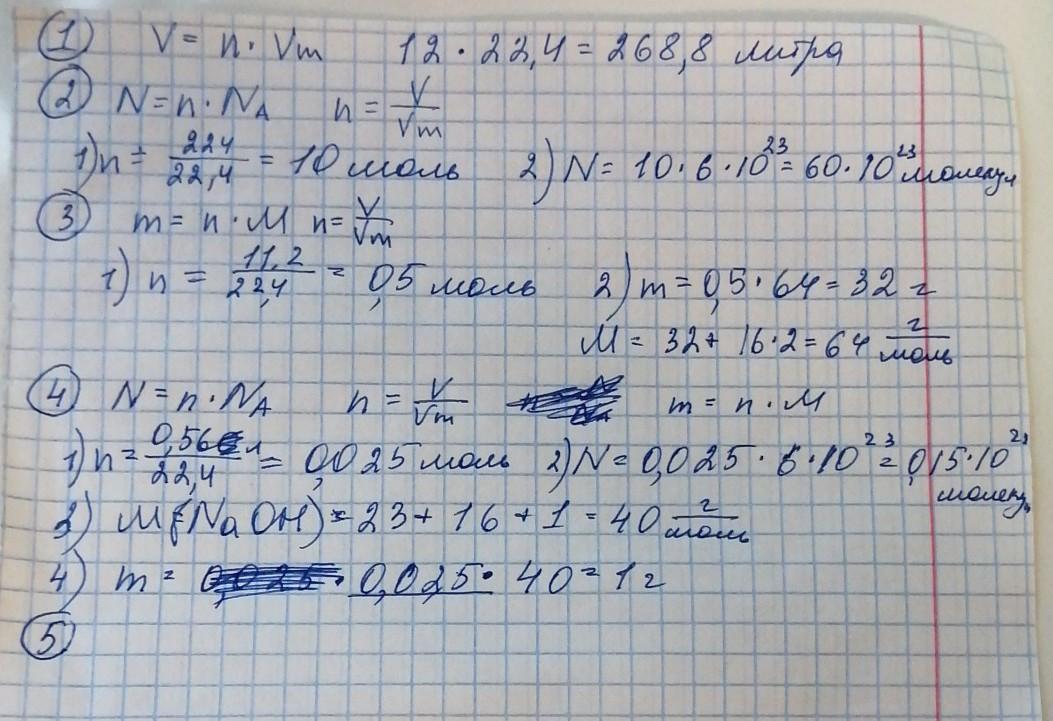 ① V = n · Vm 12 · 22,4 = 268,8 литра
② N = n · NA n = V/Vm
1) n = 224/22,4 = 10 моль 2) N = 10 · 6 · 10²³ = 60 · 10²³ молекул
③ m = n · M n = V/Vm
1) n = 11,2/22,4 = 0,5 моль 2) m = 0,5 · 64 = 32 г
M = 32 + 16 · 2 = 64 г/моль
④ N = n · NA n = V/Vm m = n · M
1) n = 0,56 л/22,4 = 0,025 моль 2) N = 0,025 · 6 · 10²³ = 0,15 · 10²³
молекул
3) M(NaOH) = 23 + 16 + 1 = 40 г/моль
4) m = 0,025 · 40 = 1 г
⑤